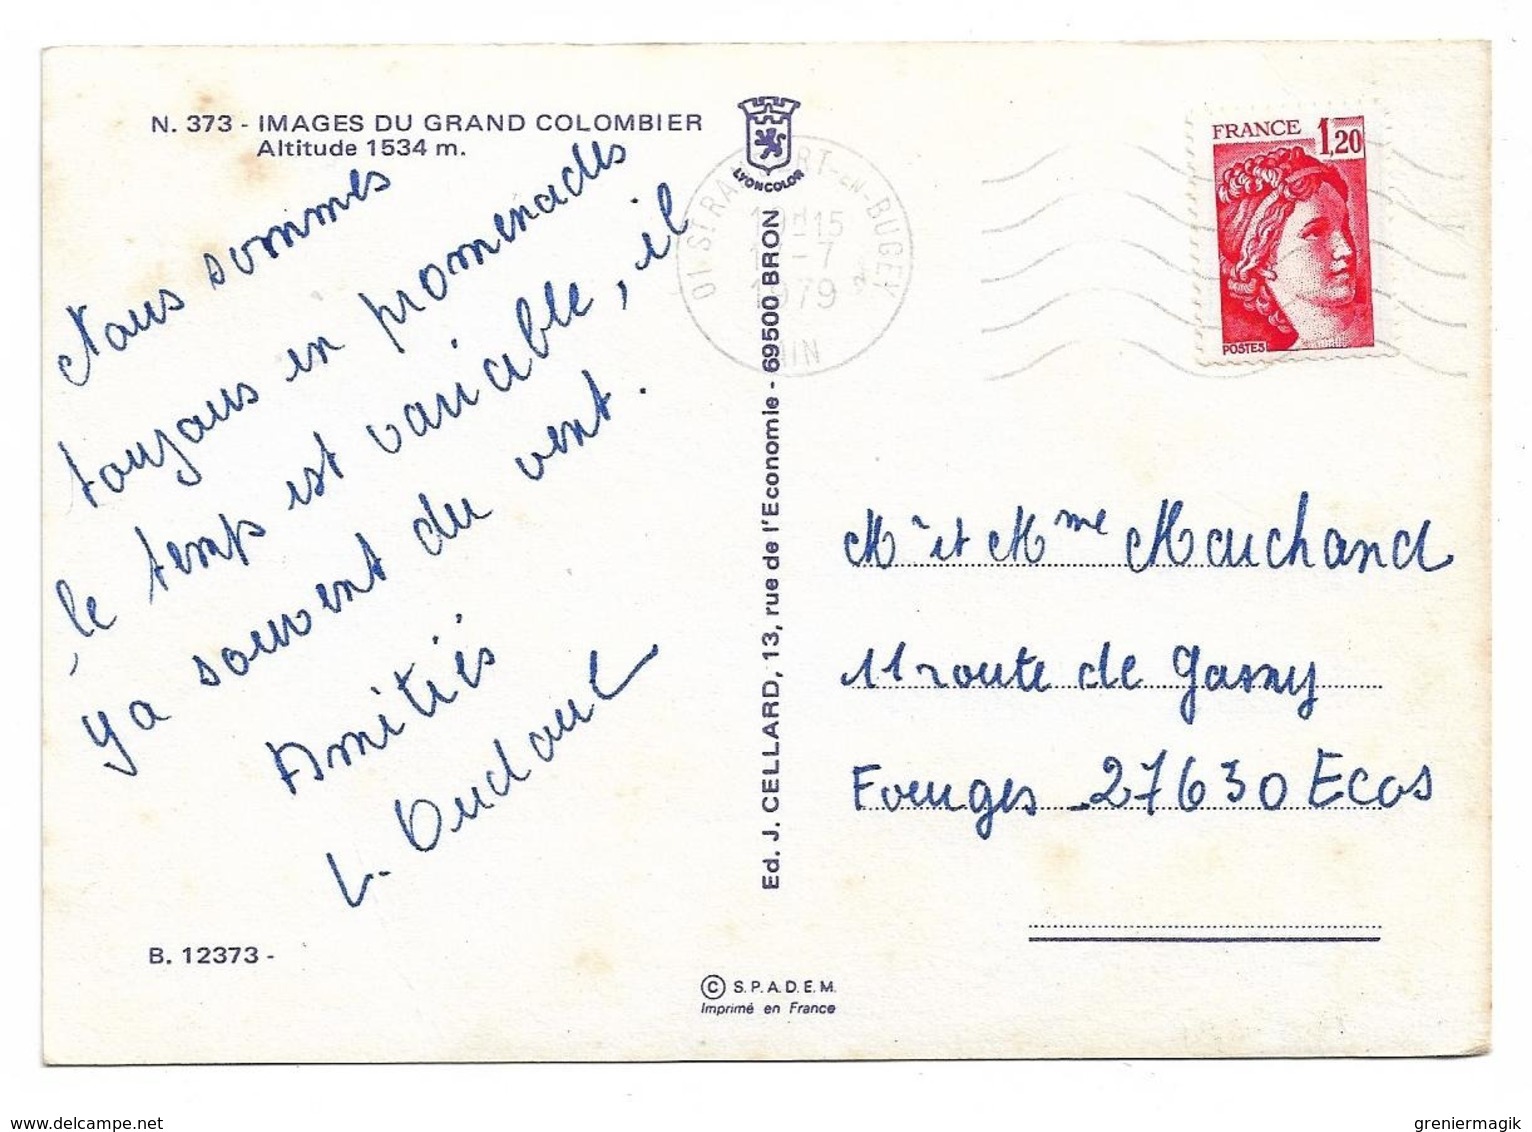 N. 373 - IMAGES DU GRAND COLOMBIER
Altitude 1534 m.
Nous sommes
toujours en promenades
le temps est variable, il
y a souvent du vent.
Amitiés
L.
LYONCOLOR
Ed. J. CELLARD, 13, rue de l'Economie - 69500 BRON
01 ST RAMBERT-EN-BUGEY
-7
1979
AIN
FRANCE 1,20
POSTES
Mr et Mme Marchand
11 route de Gasny
Fourges 27630 Ecos
B. 12373 -
© S.P.A.D.E.M.
Imprimé en France
www.delcampe.net
greniermagik